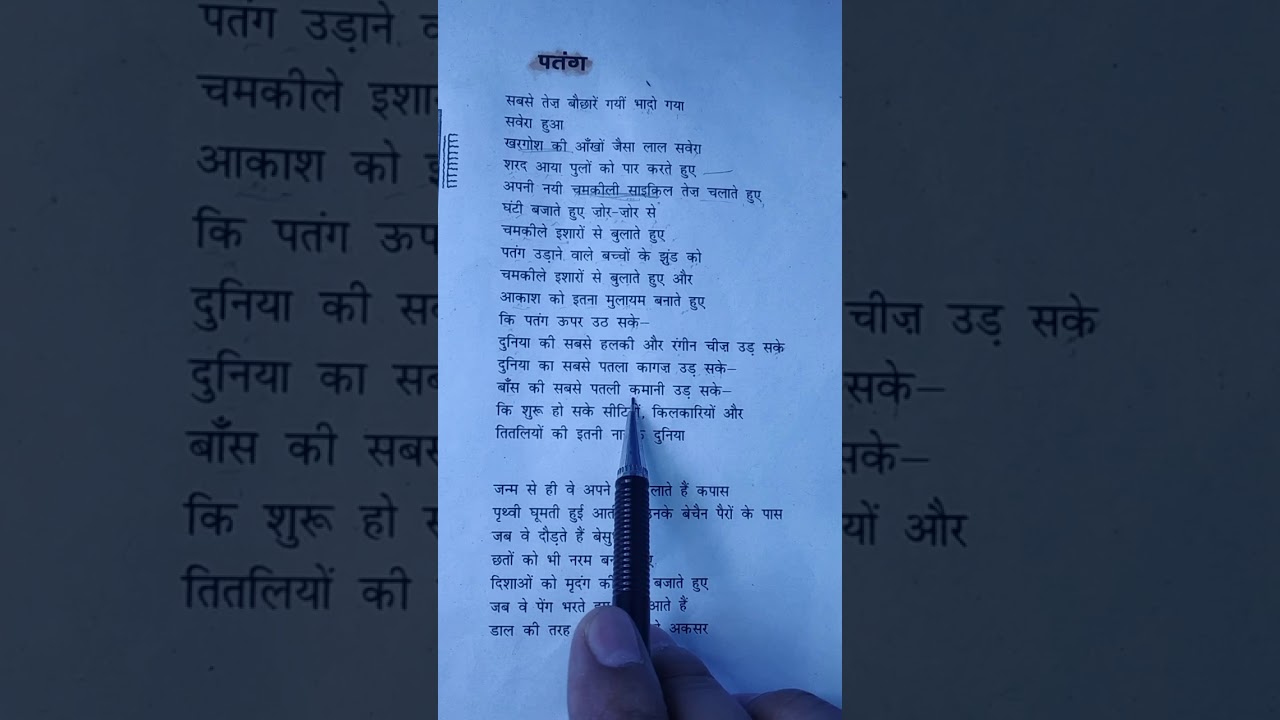 पतंग
सबसे तेज़ बौछारें गयीं भादो गया
सवेरा हुआ
खरगोश की आँखों जैसा लाल सवेरा
शरद आया पुलों को पार करते हुए
अपनी नयी चमकीली साइकिल तेज़ चलाते हुए
घंटी बजाते हुए ज़ोर-ज़ोर से
चमकीले इशारों से बुलाते हुए
पतंग उड़ाने वाले बच्चों के झुंड को
चमकीले इशारों से बुलाते हुए और
आकाश को इतना मुलायम बनाते हुए
कि पतंग ऊपर उठ सके–
दुनिया की सबसे हलकी और रंगीन चीज़ उड़ सके
दुनिया का सबसे पतला कागज़ उड़ सके–
बाँस की सबसे पतली कमानी उड़ सके–
कि शुरू हो सके, किलकारियों और
तितलियों की इतनी दुनिया
जन्म से ही वे अपने कपास
पृथ्वी घूमती हुई बेचैन पैरों के पास
जब वे दौड़ते हैं
छतों को भी नरम
दिशाओं को मृदंग की बजाते हुए
जब वे पेंग भरते आते हैं
डाल की तरह अकसर